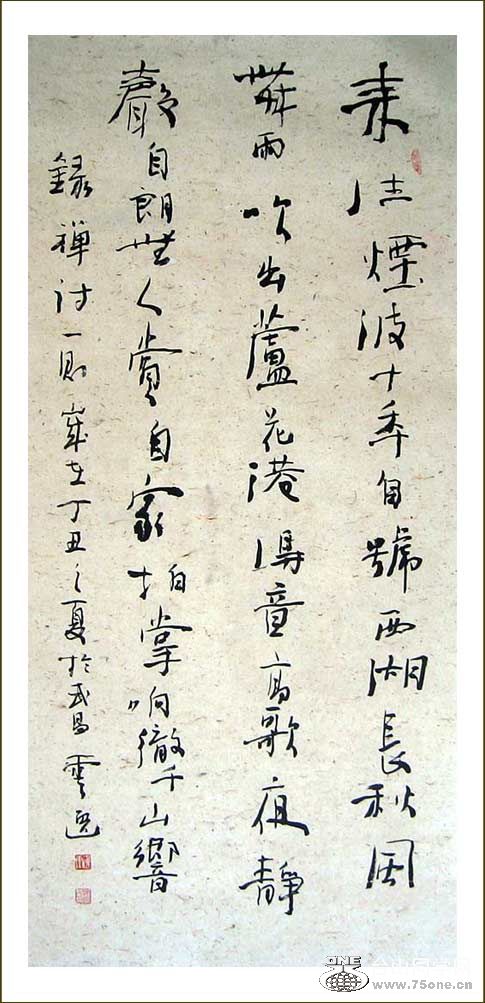 来往煙波十年自號西湖長秋風
五雨吹出蘆花港得意高歌夜靜
聲自朗無人賞自家拍掌响徹千山響
錄禪詩一則歲在丁丑之夏於武昌雲逸
ONE
www.75one.cn